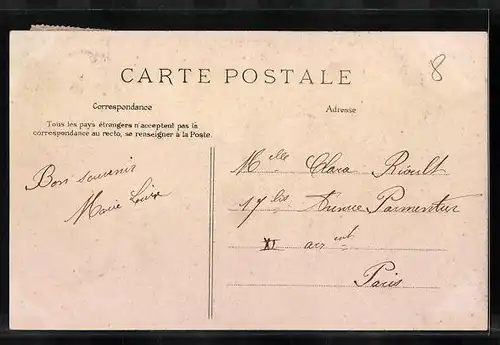 8
CARTE POSTALE
Correspondance
Adresse
Tous les pays étrangers n'acceptent pas la
correspondance au recto, se renseigner à la Poste.
Bon souvenir
Marie Louise
Melle Clara Rioult
17 bis Avenue Parmentier
XI arrt
Paris